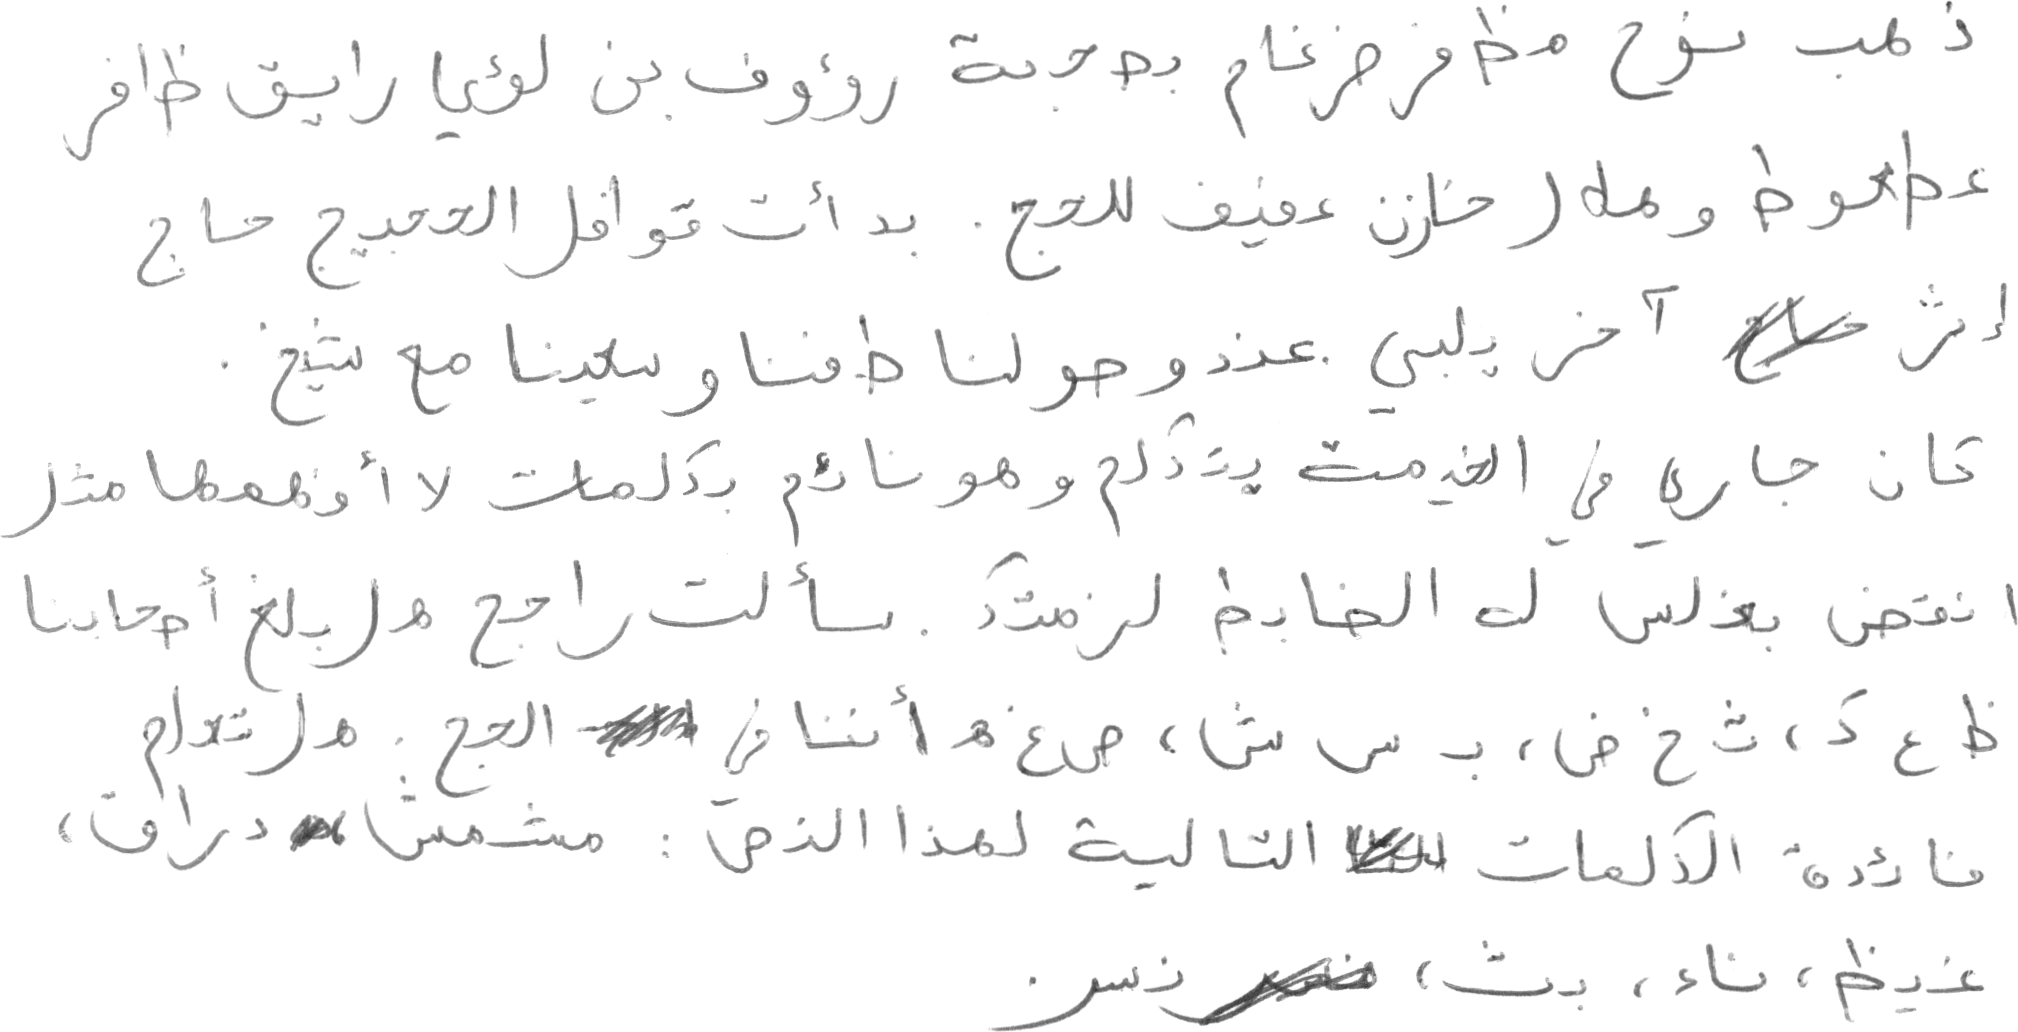 ذهب نوح مظفر ضرغام بصحبة رؤوف بن لؤي رايق ظافر
عطعوط وهلال خازن عفيف للحج. بدأت قوافل الحجيج حاج
إثر آخر يلبي عند وصولنا طفنا وسعينا مع شيخ.
كان جاري في الخيمة يتكلم وهو نائم بكلمات لا أفهمها مثل
انقض بغلس لك الضابط لزمتك. سألت راجح هل بلغ أصحابنا
ظ ع ك، ث خ ض، ب س ش، ص غ ه أننا في الحج. هل تعلم
فائدة الكلمات التالية لهذا النص: مشمش، دراق،
غيظ، ناء، بث، نسر.